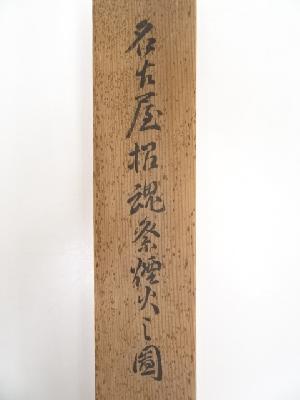 名古屋招魂祭煙火之圖